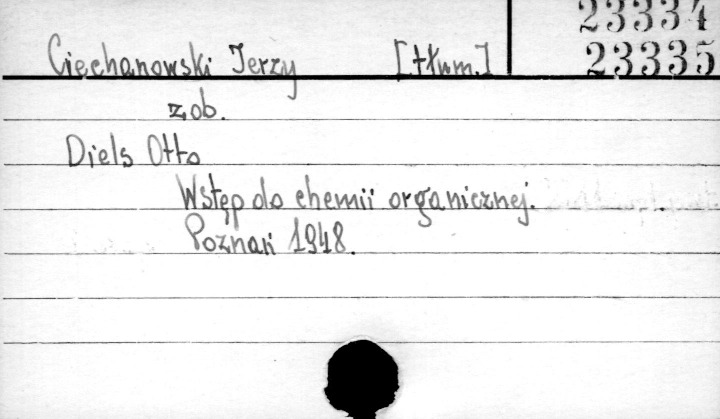 23334
Ciechanowski Jerzy [tłum.] 23335
zob.
Diels Otto
Wstęp do chemii organicznej.
Poznań 1948.